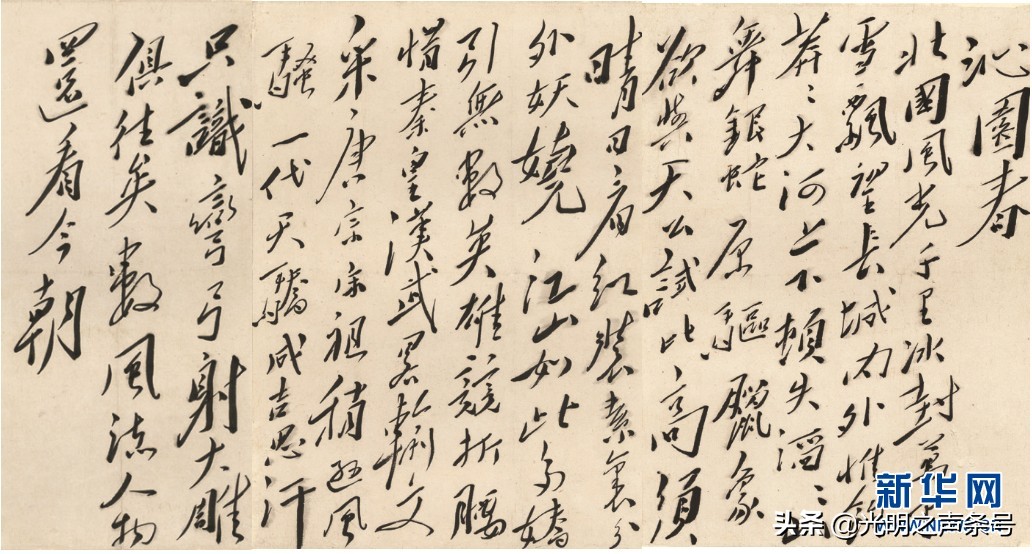 沁園春
北國風光千里冰封萬里
雪飄望長城內外惟餘
莽々大河上下頓失滔々山
舞銀蛇原驅臘象
欲與天公試比高須
晴日看紅裝素裹分
外妖嬈江山如此多嬌
引無數英雄競折腰
惜秦皇漢武略輸文
采唐宗宋祖稍遜風
騷一代天驕成吉思汗
只識彎弓射大雕
俱往矣數風流人物
還看今朝
新华网
头条@光明之声条号